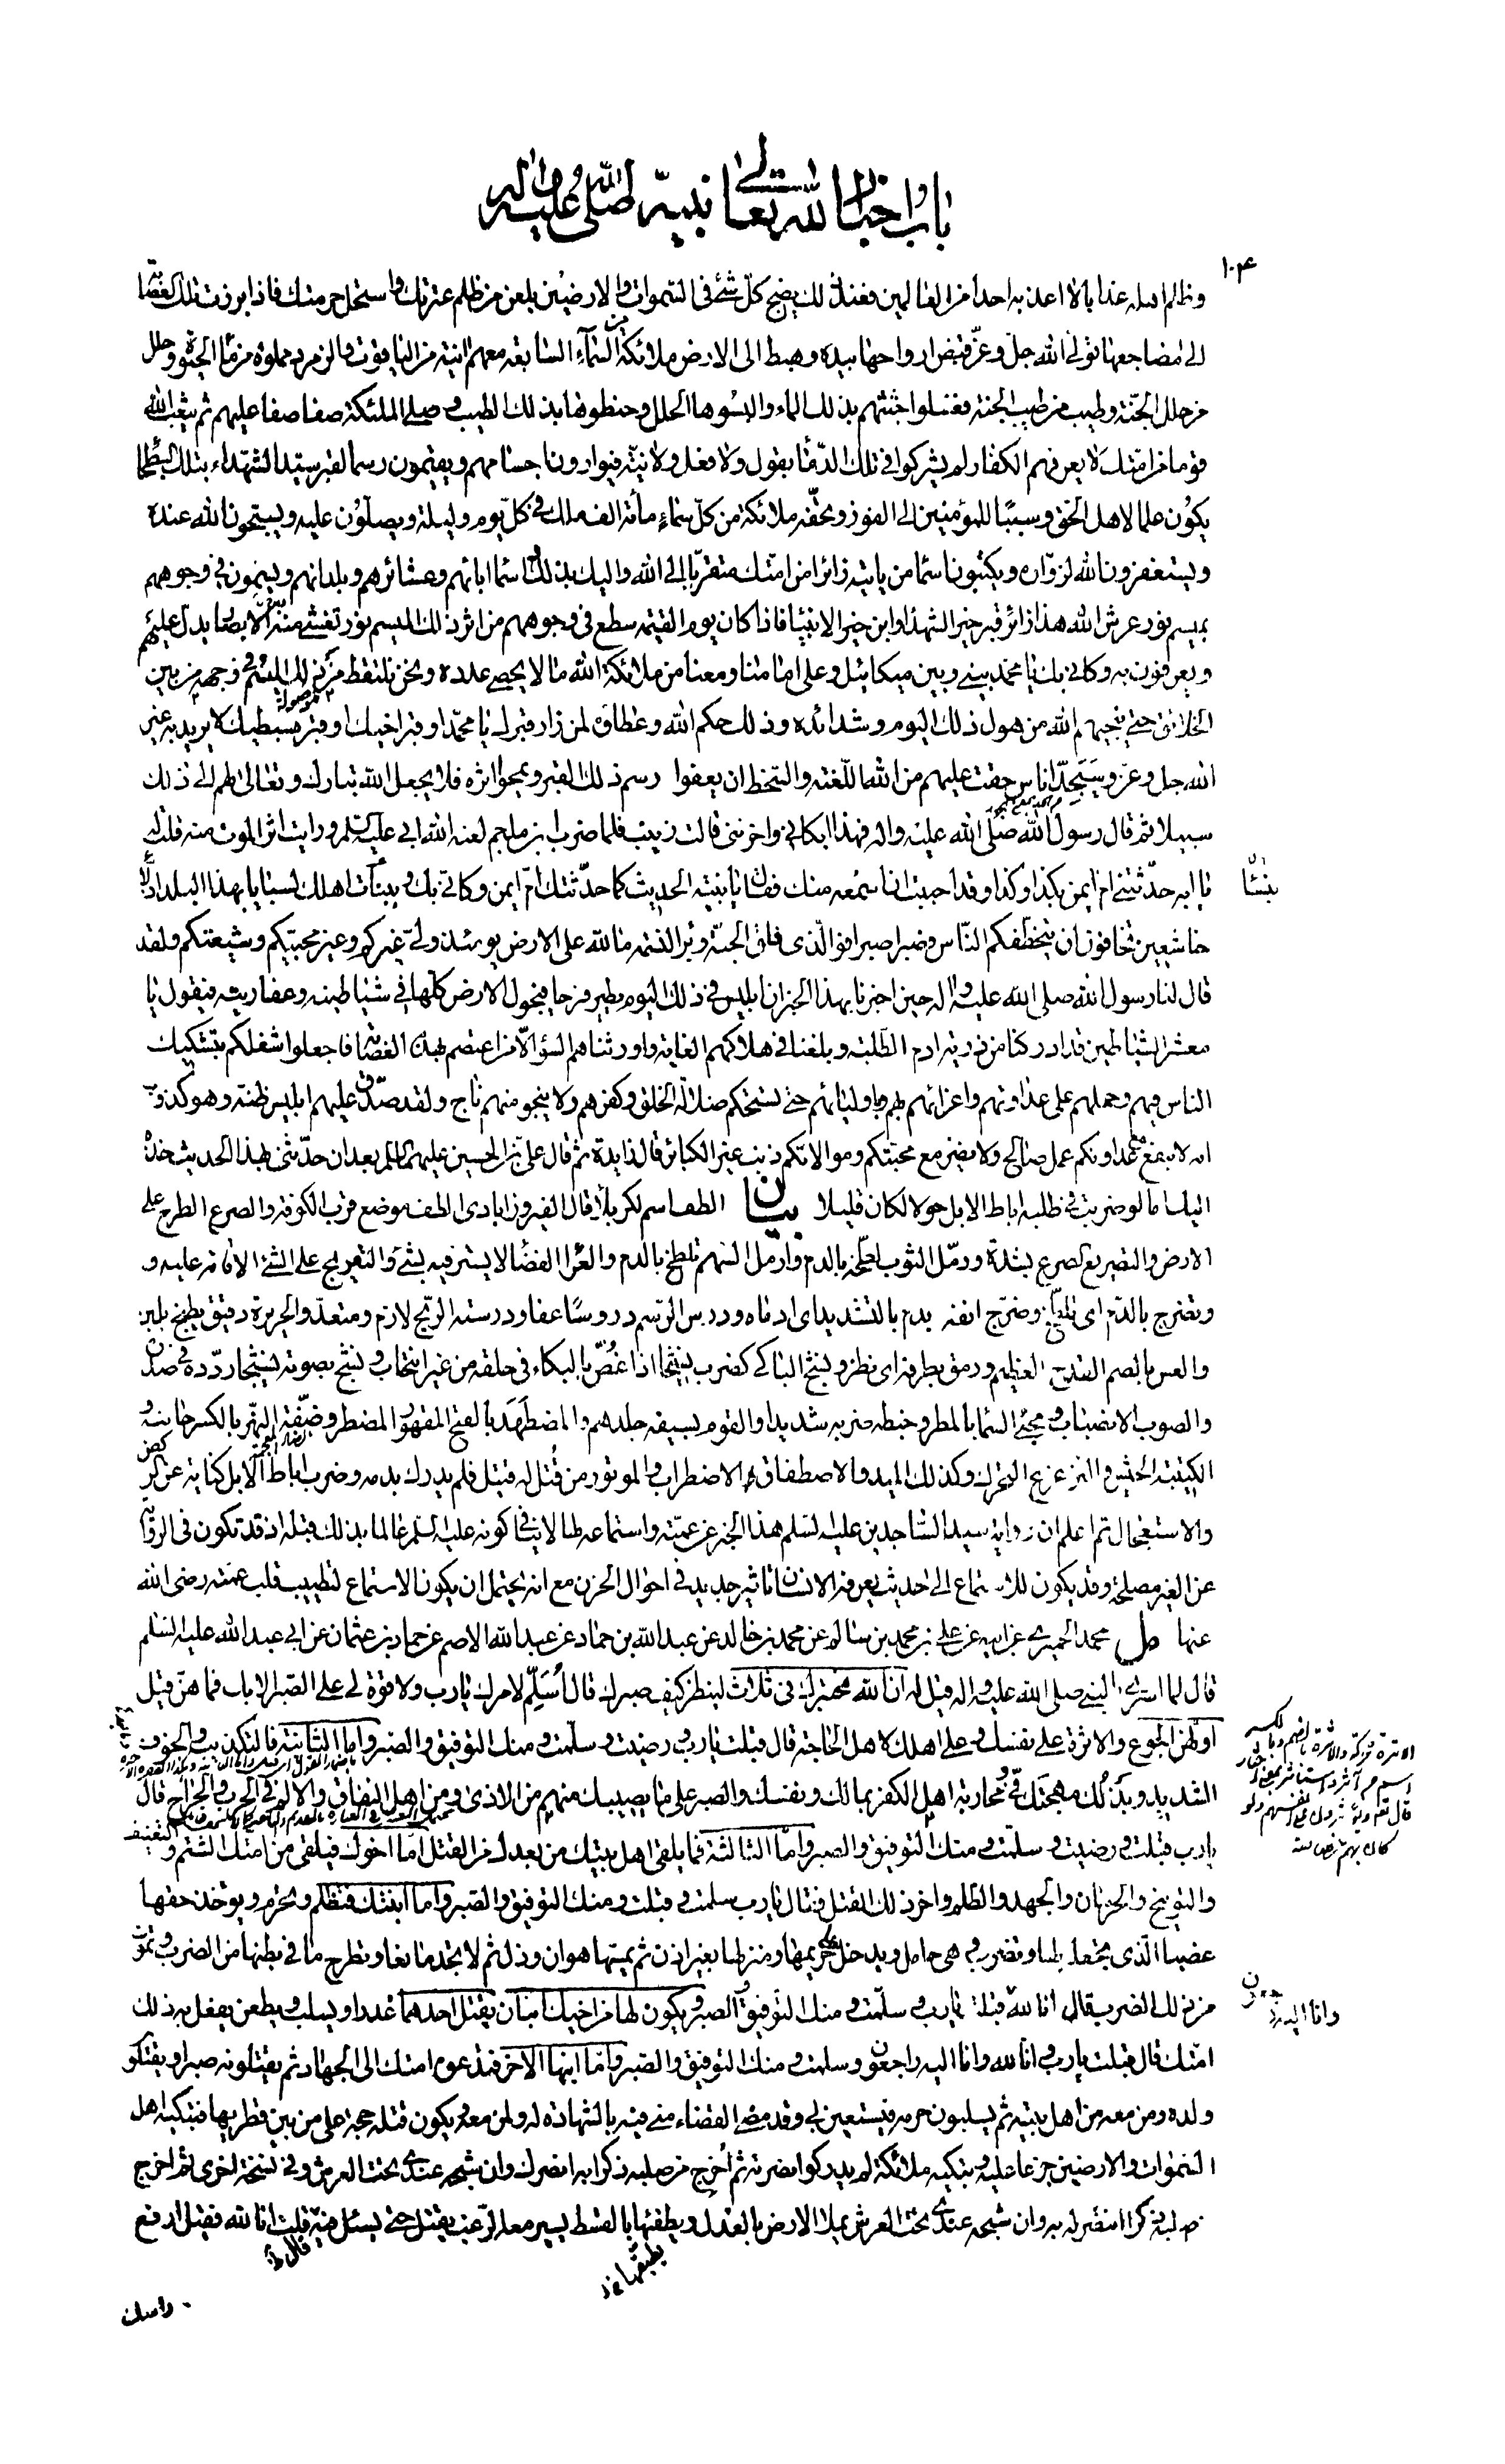 باب اخبار الله تعالى نبيه صلى الله عليه واله
١٠٤
وظالم اهله عذابا لا اعذبه احدا من العالمين فعند ذلك يضج كل شئ فى السموات والارضين بلعن من ظلم عترتك واستحل حرمتك فاذا برزت تلك العصابة
الى مضاجعها تولى الله جل وعز قبض ارواحها بيده وهبط الى الارض ملائكة من السماء السابعة معهم انية من الياقوت والزمرد مملوة من ماء الحيوة وحلل
من حلل الجنة وطيب من طيب الجنة فغسلوا جثثهم بذلك الماء والبسوها الحلل وحنطوها بذلك الطيب وصلى الملئكة صفا صفا عليهم ثم يبعث الله
قوما من امتك لا يعرفهم الكفار لم يشركوا فى تلك الدماء بقول ولا فعل ولا نية فيوارون اجسامهم ويقيمون رسما لقبر سيد الشهداء بتلك البطحاء
يكون علما لاهل الحق وسببا للمؤمنين الى الفوز وتحفه ملائكة من كل سماء مائة الف ملك فى كل يوم وليلة ويصلون عليه ويسبحون الله عنده
ويستغفرون الله لزواره ويكتبون اسماء من ياتيه زائرا من امتك متقربا الى الله واليك بذلك واسماء ابائهم وعشائرهم وبلدانهم ويسمون فى وجوههم
بميسم نور عرش الله هذا زائر قبر خير الشهداء وابن خير الانبياء فاذا كان يوم القيمة سطع فى وجوههم من اثر ذلك الميسم نور تغشى منه الابصار يدل عليهم
ويعرفون به وكانى بك يا محمد بينى وبين ميكائيل وعلى امامنا ومعنا من ملائكة الله ما لا يحصى عدده ونحن نلتقط من ذلك الميسم فى وجهه من بين
الخلائق حتى ينجيهم الله من هول ذلك اليوم وشدائده وذلك حكم الله وعطاؤه لمن زار قبرك يا محمد او قبر اخيك او قبر سبطيك لا يريد به غير
الله جل وعز وسيجد اناس حقت عليهم من الله اللعنة والسخط ان يعفوا رسم ذلك القبر ويمحوا اثره فلا يجعل الله تبارك وتعالى لهم الى ذلك
سبيلا ثم قال رسول الله صلى الله عليه واله فهذا ابكانى واحزننى قالت زينب فلما ضرب ابن ملجم لعنه الله ابى عليه السلم ورايت اثر الموت منه قلت له
يا ابه حدثتنى ام ايمن بكذا وكذا وقد احببت ان اسمعه منك فقال يا بنية الحديث كما حدثتك ام ايمن وكانى بك وببنات اهلك لسبايا بهذا البلد اذلاء
بنساء
خاشعين تخافون ان يتخطفكم الناس فصبرا صبرا فوالذى فلق الحبة وبرا النسمة ما لله على الارض يومئذ ولى غيركم وغير محبيكم وشيعتكم ولقد
قال لنا رسول الله صلى الله عليه واله حين اخبرنا بهذا الخبر ان ابليس فى ذلك اليوم يطير فرحا فيجول الارض كلها فى شياطينه وعفاريته فيقول يا
معشر الشياطين قد ادركنا من ذرية ادم الطلبة وبلغنا فى هلاكهم الغاية واورثناهم السوء الا من اعتصم بهذه العصابة فاجعلوا شغلكم بتشكيك
الناس فيهم وحملهم على عداوتهم واغرائهم بهم وباوليائهم حتى تستحكم ضلالة الخلق وكفرهم ولا ينجو منهم ناج ولقد صدق عليهم ابليس ظنه وهو كذوب
انه لا ينفع مع عداوتكم عمل صالح ولا يضر مع محبتكم وموالاتكم ذنب غير الكبائر قال زايدة ثم قال على بن الحسين عليهما السلم بعد ان حدثنى بهذا الحديث خذه
اليك اما لو ضربت فى طلبه اباط الابل حولا لكان قليلا بيان الطف اسم لكربلا قال الفيروزابادى الطف موضع قرب الكوفة والصرع الطرح على
الارض والتصريع الصرع بشدة ورمل الثوب لطخه بالدم وارمل السهم تلطخ بالدم والعراء الفضاء لا يستر فيه بشئ والتعريج على الشئ الاقامة عليه و
وتضرج بالدم اى تلطخ وضرج انفه بدم بالتشديد اى ادماه ودرس الرسم دروسا عفا ودرسته الريح لازم ومتعد والحريرة دقيق يطبخ بلبن
والعس بالضم القدح العظيم ورمق بطرفه اى نظر ونشج الباكى كضرب نشيجا اذا غص بالبكاء فى حلقه من غير انتحاب ونشج بصوته نشيجا ردده فى صدره
والصوب الانصباب ومجئ السماء بالمطر وخبطه ضربه شديدا والقوم بسيفه جلدهم والمضطهد بالفتح المقهور المضطر وضفة النهر بالكسر جانبه و
الكتيبة الجيش والتزعزع التحرك وكذلك الميد والاصطفاق الاضطراب والموتور من قتل له قتيل فلم يدرك بدمه وضرب اباط الابل كناية عن الركض
والاستعجال ثم اعلم ان رواية سيد الساجدين عليه السلم هذا الخبر عن عمته واستماعه لها لا ينافى كونه عليه السلم عالما بذلك قبله اذ قد تكون فى الرواية
عن الغير مصلحة وقد يكون للاستماع الى حديث يعرفه الانسان تاثير جديد فى احوال الحزن مع انه يحتمل ان يكون الاستماع لتطييب قلب عمته رضى الله
عنها مل محمد الحميرى عن ابيه عن على بن محمد بن سالم عن محمد بن خالد عن عبد الله بن حماد عن عبد الله الاصم عن حماد بن عثمان عن ابى عبد الله عليه السلم
قال لما اسرى بالنبى صلى الله عليه واله قيل له ان الله مختبرك فى ثلاث لينظر كيف صبرك قال اسلم لامرك يا رب ولا قوة لى على الصبر الا بك فما هن قيل
اولهن الجوع والاثرة على نفسك وعلى اهلك لاهل الحاجة قال قبلت يا رب ورضيت وسلمت ومنك التوفيق والصبر واما الثانية فالتكذيب والخوف
الشديد وبذلك مهجتك فى ومحاربة اهل الكفر بمالك ونفسك والصبر على ما يصيبك منهم من الاذى ومن اهل النفاق والالم فى الحرب والجراح قال
يا رب قبلت ورضيت وسلمت ومنك التوفيق والصبر واما الثالثة فما يلقى اهل بيتك من بعدك من القتل اما اخوك فيلقى من امتك الشتم والتعنيف
والتوبيخ والحرمان والجهد والظلم واخر ذلك القتل فقال يا رب سلمت وقبلت ومنك التوفيق والصبر واما ابنتك فتظلم وتحرم ويؤخذ حقها
غصبا الذى تجعله لها وتضرب وهى حامل ويدخل على حريمها ومنزلها بغير اذن ثم يمسها هوان وذل ثم لا تجد مانعا وتطرح ما فى بطنها من الضرب وتموت
من ذلك الضرب قال انا لله قبلت يا رب وسلمت ومنك التوفيق والصبر ويكون لها من اخيك ابنان يقتل احدهما غدرا ويسلب ويطعن يفعل به ذلك
وانا اليه
امتك قال قبلت يا رب وانا لله وانا اليه راجعون وسلمت ومنك التوفيق والصبر واما ابنها الاخر فتدعوه امتك الى الجهاد ثم يقتلونه صبرا ويقتلون
ولده ومن معه من اهل بيته ثم يسلبون حرمه فيستعين بى وقد مضى القضاء منى فيه بالشهادة له ولمن معه ويكون قتله حجة على من بين قطريها فتبكيه اهل
السموات والارضين جزعا عليه وتبكيه ملائكة لم يدركوا نصرته ثم اخرج من صلبه ذكرا به انصرك وان شبحه عندى تحت العرش وفى نسخة اخرى ثم اخرج
من صلبه ذكرا انتصر له به وان شبحه عندى تحت العرش يملا الارض بالعدل ويطفئها بالقسط يسير معه الرعب يقتل حتى يسئل فيه قلت انا لله فقيل ارفع
يطبقها خ
قال ظ
راسك